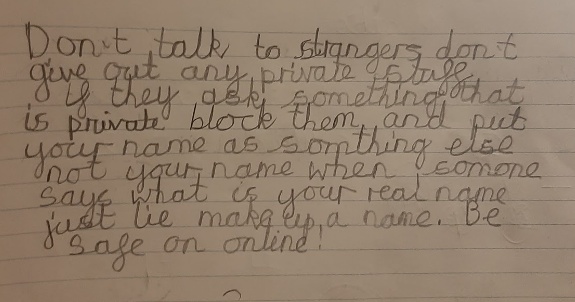 Don't talk to strangers don't
give out any private stuff
if they ask something that
is private block them and put
your name as somthing else
not your name when somone
says what is your real name
just lie make up a name. Be
safe on online!